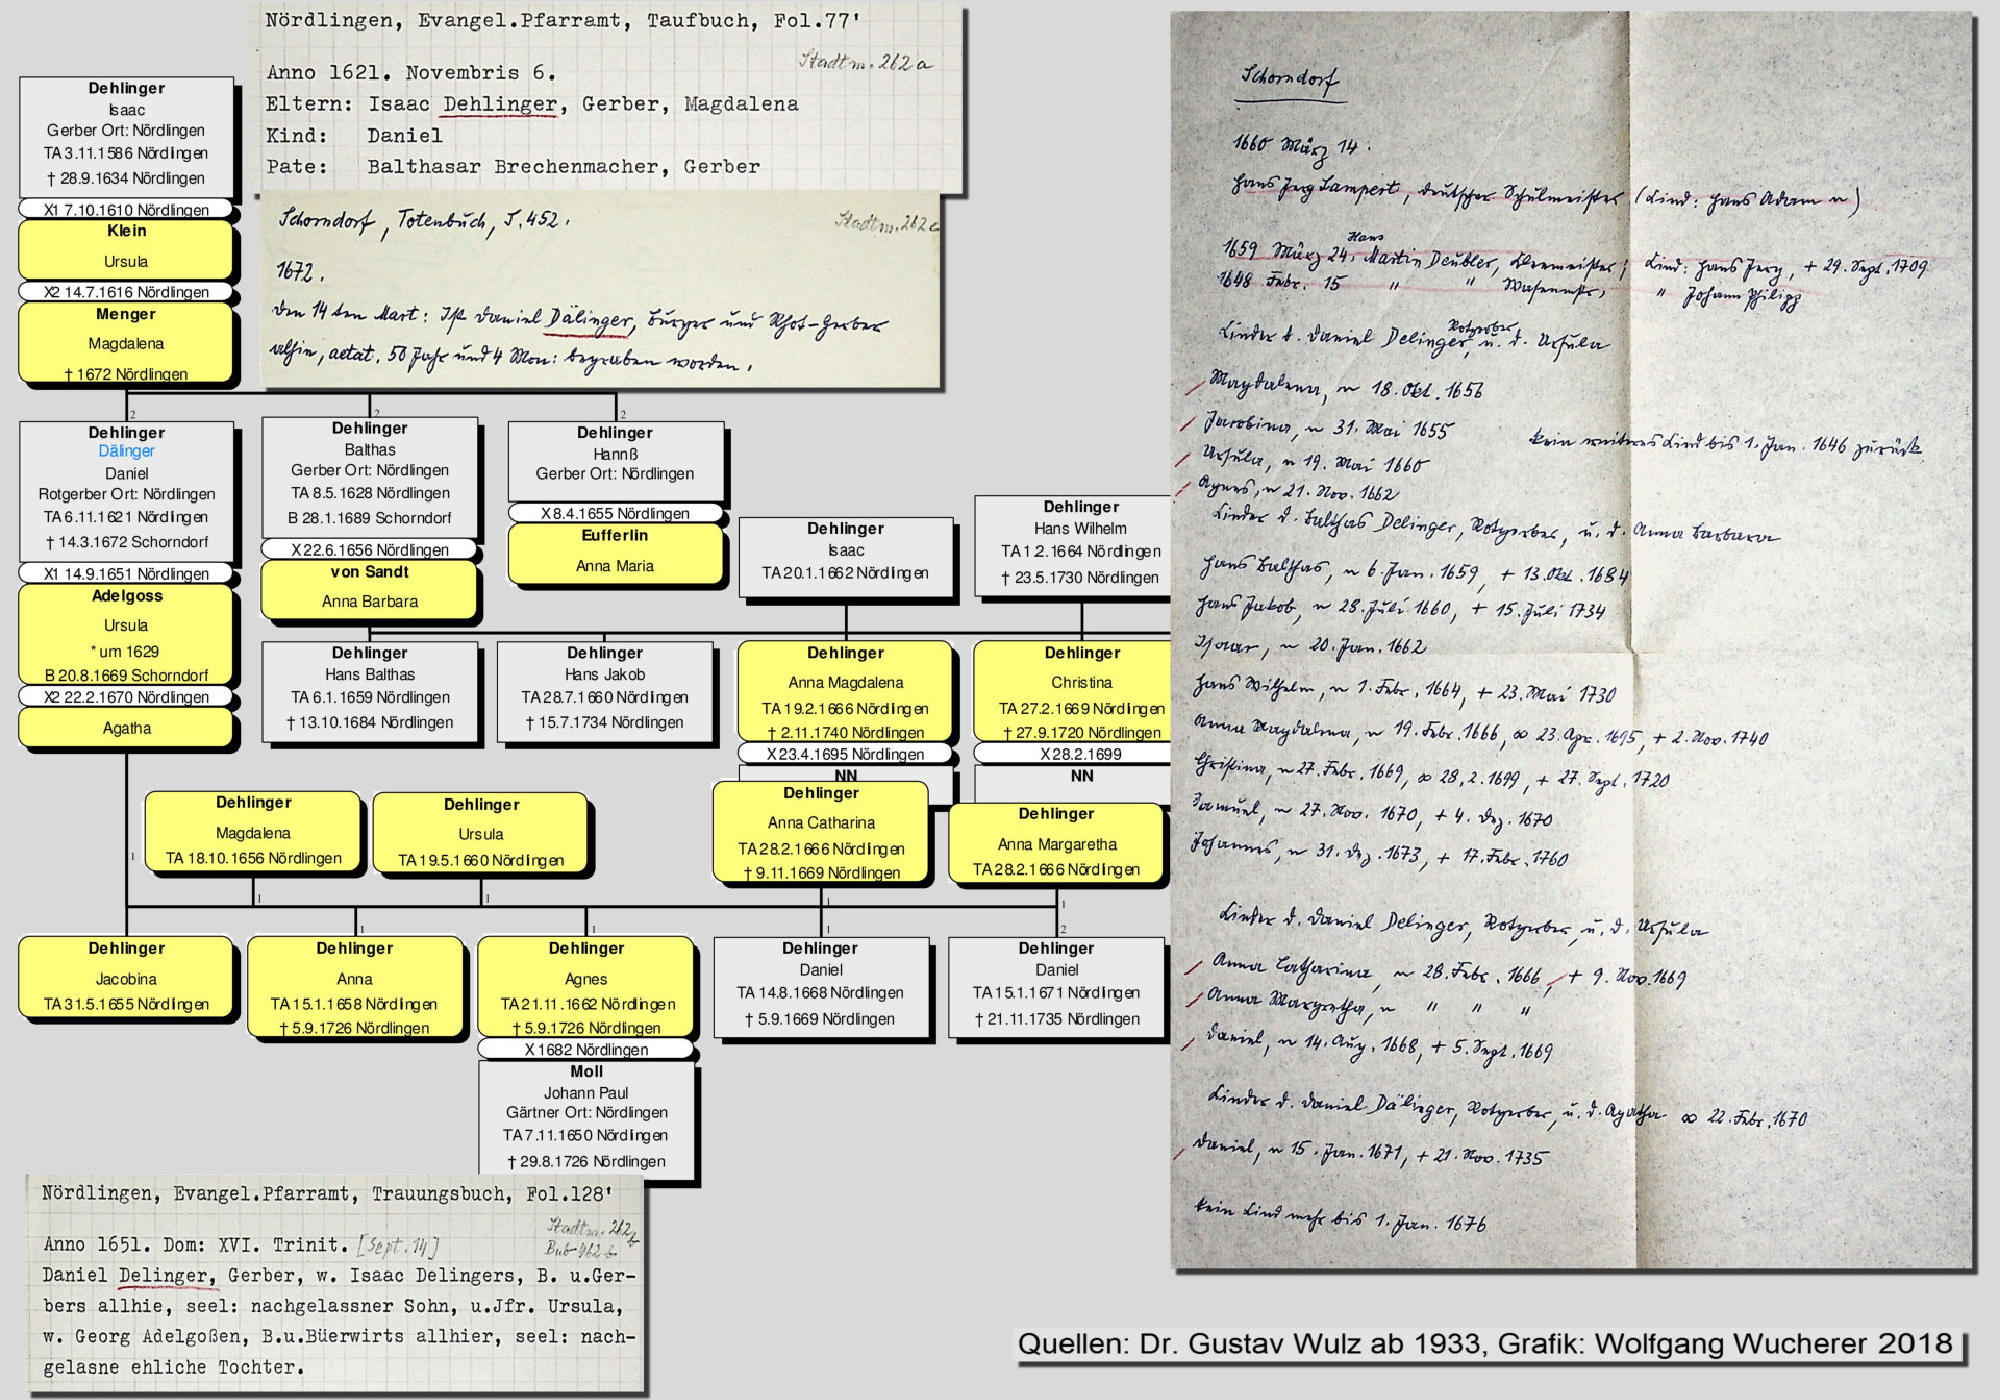 Nördlingen, Evangel.Pfarramt, Taufbuch, Fol.77'
Stadtm. 262 a
Anno 1621. Novembris 6.
Eltern: Isaac Dehlinger, Gerber, Magdalena
Kind: Daniel
Pate: Balthasar Brechenmacher, Gerber
Schorndorf, Totenbuch, S. 452.
Stadtm. 262 c
1672.
den 14 ten Mart: Ist Daniel Dälinger, burger und Rhot-Gerber
alhin, aetat. 50 Jahr und 4 Mon: begraben worden.
Dehlinger
Isaac
Gerber Ort: Nördlingen
TA 3.11.1586 Nördlingen
† 28.9.1634 Nördlingen
X1 7.10.1610 Nördlingen
Klein
Ursula
X2 14.7.1616 Nördlingen
Menger
Magdalena
† 1672 Nördlingen
2
2
2
Dehlinger
Dälinger
Daniel
Rotgerber Ort: Nördlingen
TA 6.11.1621 Nördlingen
† 14.3.1672 Schorndorf
X1 14.9.1651 Nördlingen
Adelgoss
Ursula
* um 1629
B 20.8.1669 Schorndorf
X2 22.2.1670 Nördlingen
Agatha
Dehlinger
Balthas
Gerber Ort: Nördlingen
TA 8.5.1628 Nördlingen
B 28.1.1689 Schorndorf
X 22.6.1656 Nördlingen
von Sandt
Anna Barbara
Dehlinger
Hannß
Gerber Ort: Nördlingen
X 8.4.1655 Nördlingen
Eufferlin
Anna Maria
Dehlinger
Isaac
TA 20.1.1662 Nördlingen
Dehlinger
Hans Wilhelm
TA 1.2.1664 Nördlingen
† 23.5.1730 Nördlingen
Dehlinger
Hans Balthas
TA 6.1.1659 Nördlingen
† 13.10.1684 Nördlingen
Dehlinger
Hans Jakob
TA 28.7.1660 Nördlingen
† 15.7.1734 Nördlingen
Dehlinger
Anna Magdalena
TA 19.2.1666 Nördlingen
† 2.11.1740 Nördlingen
X 23.4.1695 Nördlingen
NN
Dehlinger
Christina
TA 27.2.1669 Nördlingen
† 27.9.1720 Nördlingen
X 28.2.1699
NN
Dehlinger
Magdalena
TA 18.10.1656 Nördlingen
Dehlinger
Ursula
TA 19.5.1660 Nördlingen
Dehlinger
Anna Catharina
TA 28.2.1666 Nördlingen
† 9.11.1669 Nördlingen
Dehlinger
Anna Margaretha
TA 28.2.1666 Nördlingen
1
1
1
1
1
1
1
2
Dehlinger
Jacobina
TA 31.5.1655 Nördlingen
Dehlinger
Anna
TA 15.1.1658 Nördlingen
† 5.9.1726 Nördlingen
Dehlinger
Agnes
TA 21.11.1662 Nördlingen
† 5.9.1726 Nördlingen
X 1682 Nördlingen
Moll
Johann Paul
Gärtner Ort: Nördlingen
TA 7.11.1650 Nördlingen
† 29.8.1726 Nördlingen
Dehlinger
Daniel
TA 14.8.1668 Nördlingen
† 5.9.1669 Nördlingen
Dehlinger
Daniel
TA 15.1.1671 Nördlingen
† 21.11.1735 Nördlingen
Nördlingen, Evangel.Pfarramt, Trauungsbuch, Fol.128'
Stadtm. 262 b
Anno 1651. Dom: XVI. Trinit. [Sept. 14]
Daniel Delinger, Gerber, w. Isaac Delingers, B. u.Ger-
bers allhie, seel: nachgelassner Sohn, u.Jfr. Ursula,
w. Georg Adelgoßen, B.u.Büerwirts allhier, seel: nach-
gelasne ehliche Tochter.
Schorndorf
1660 März 14.
Hans Jerg Lampert, deutscher Schulmeister (Kind: Hans Adam ~)
1659 März 24. Hans Martin Deubler, ; Kind: Hans Jerg, + 29. Sept. 1709
1648 Febr. 15 " " " Johann Philipp
Kinder d. Daniel Delinger, Rotgerber, u. d. Ursula
Magdalena, ~ 18. Okt. 1656
Jacobina, ~ 31. Mai 1655
kein weiteres Kind bis 1. Jan. 1646 zurück
Ursula, ~ 19. Mai 1660
Agnes, ~ 21. Nov. 1662
Kinder d. Balthas Delinger, Rotgerber, u. d. Anna Barbara
Hans Balthas, ~ 6. Jan. 1659, + 13. Okt. 1684
Hans Jakob, ~ 28. Juli 1660, + 15. Juli 1734
Isaac, ~ 20. Jan. 1662
Hans Wilhelm, ~ 1. Febr. 1664, + 23. Mai 1730
Anna Magdalena, ~ 19. Febr. 1666, ∞ 23. Apr. 1695, + 2. Nov. 1740
Christina, ~ 27. Febr. 1669, ∞ 28.2.1699, + 27. Sept. 1720
Samuel, ~ 27. Nov. 1670, + 4. Dez. 1670
Johannes, ~ 31. Dez. 1673, + 17. Febr. 1760
Kinder d. Daniel Delinger, Rotgerber, u. d. Ursula
Anna Catharina, ~ 28. Febr. 1666, + 9. Nov. 1669
Anna Margretha, ~ " " "
Daniel, ~ 14. Aug. 1668, + 5. Sept. 1669
Kinder d. Daniel Dälinger, Rotgerber, u. d. Agatha ∞ 22. Febr. 1670
Daniel, ~ 15. Jan. 1671, + 21. Nov. 1735
kein Kind mehr bis 1. Jan. 1676
Quellen: Dr. Gustav Wulz ab 1933, Grafik: Wolfgang Wucherer 2018